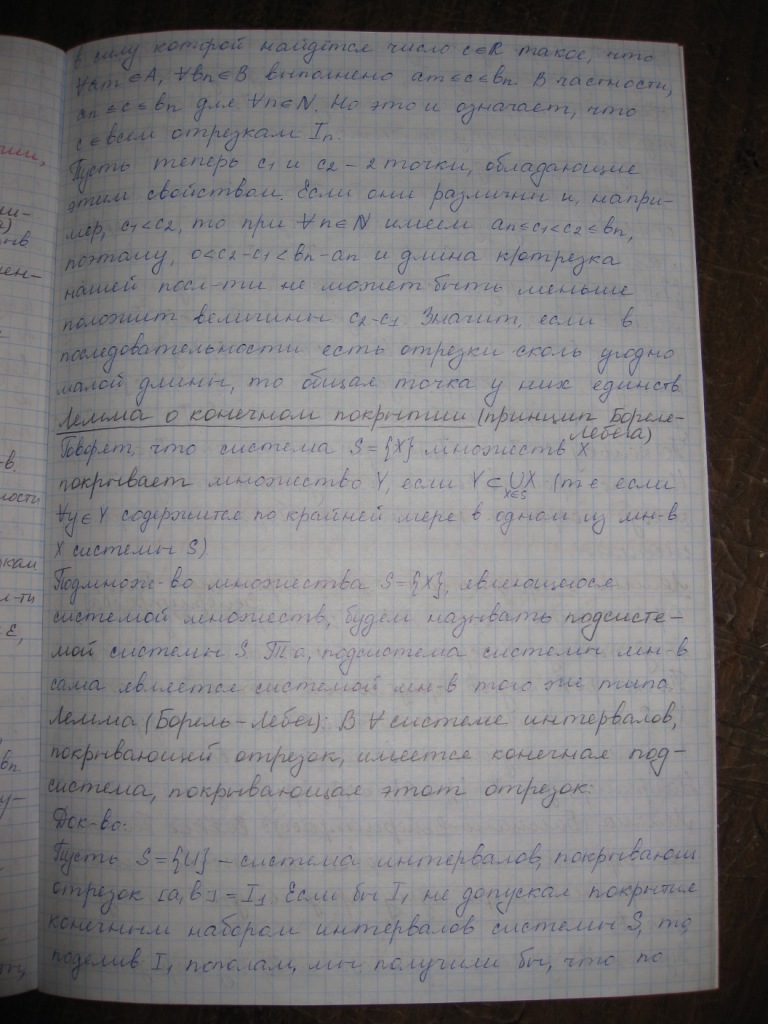 чии,
ни-
а)
нв
ен-
в.
ности
кам
л-ти
ε,
вn.
у-
в силу которой найдётся число c∈R такое, что
∀am∈A, ∀вn∈B выполнено am≤c≤вn. В частности,
an≤c≤вn для ∀n∈N. Но это и означает, что
c∈всем отрезкам In.
Пусть теперь c1 и c2 – 2 точки, обладающие
этим свойством. Если они различны и, напри-
мер, c1<c2, то при ∀n∈N имеем an≤c1<c2≤вn,
поэтому, 0<c2-c1<вn-an и длина к/отрезка
нашей посл-ти не может быть меньше
положит величины c2-c1. Значит, если в
последовательности есть отрезки сколь угодно
малой длины, то общая точка у них единств
Лемма о конечном покрытии (принцип Бореля-
Лебега)
Говорят, что система S={X} множеств X
покрывает множество Y, если Y⊂∪X (т е если
X∈S
∀y∈Y содержится по крайней мере в одном из мн-в
X системы S)
Подмнож-во множества S={X}, являющееся
системой множеств, будем называть подсисте-
мой системы S. Т о, подсистема системы мн-в
сама является системой мн-в того же типа.
Лемма (Борель-Лебег): В ∀ системе интервалов,
покрывающей отрезок, имеется конечная под-
система, покрывающая этот отрезок:
Док-во:
Пусть S={U} – система интервалов, покрывающ
отрезок [a,в] = I1. Если бы I1 не допускал покрытия
конечным набором интервалов системы S, то,
поделив I1 пополам, мы получили бы, что по